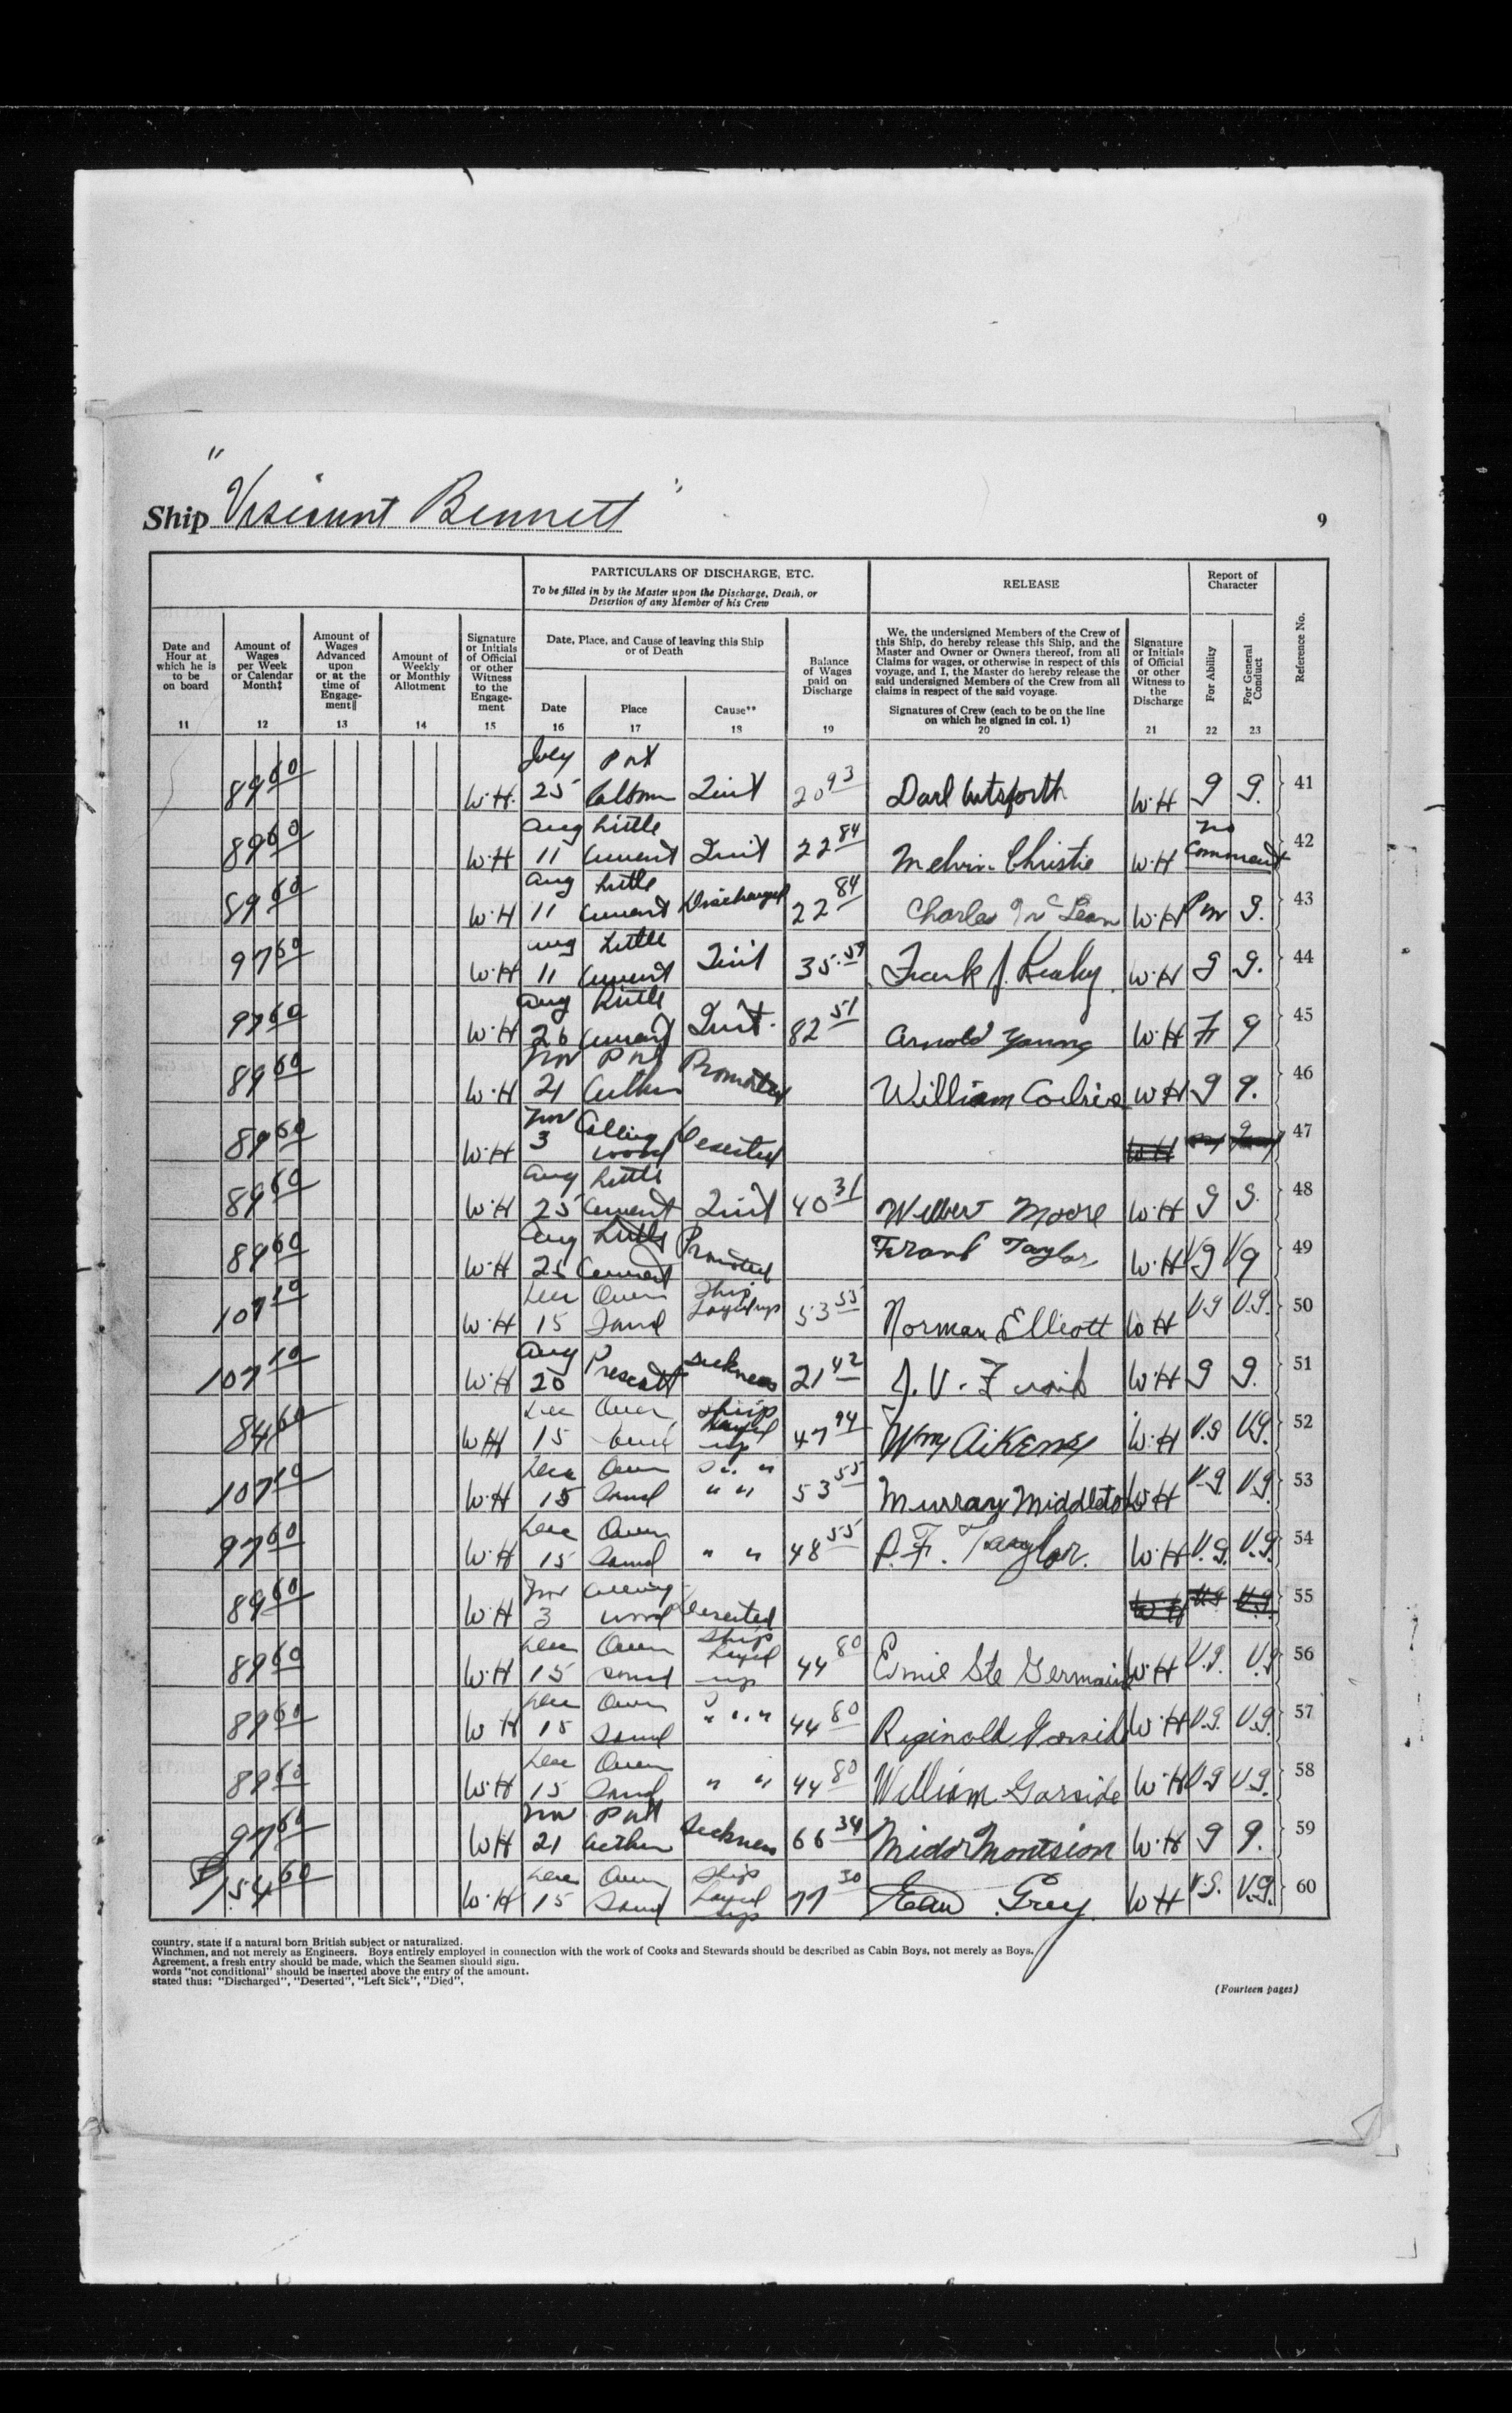 Ship "Viscount Bennett"
9
PARTICULARS OF DISCHARGE, ETC.
To be filled in by the Master upon the Discharge, Death, or
Desertion of any Member of his Crew
RELEASE
Report of
Character
Reference No.
Date and
Hour at
which he is
to be
on board
Amount of
Wages
per Week
or Calendar
Month‡
Amount of
Wages
Advanced
upon
or at the
time of
Engage-
ment‖
Amount of
Weekly
or Monthly
Allotment
Signature
or Initials
of Official
or other
Witness
to the
Engage-
ment
Date, Place, and Cause of leaving this Ship
or of Death
Date
Place
Cause**
Balance
of Wages
paid on
Discharge
We, the undersigned Members of the Crew of
this Ship, do hereby release this Ship, and the
Master and Owner or Owners thereof, from all
Claims for wages, or otherwise in respect of this
voyage, and I, the Master do hereby release the
said undersigned Members of the Crew from all
claims in respect of the said voyage.
Signatures of Crew (each to be on the line
on which he signed in col. 1)
Signature
or Initials
of Official
or other
Witness to
the
Discharge
For Ability
For General
Conduct
11 12 13 14 15 16 17 18 19 20 21 22 23
July Port
89 60 W.H. 25 Colborne Quit 20 93 W.H g g. 41
Aug Little no
89 60 W.H 11 Current Quit 22 84 Melvin Christie W.H comment 42
Aug Little
89 60 W.H 11 Current Discharged 22 84 Charles McLean W.H g. 43
Aug Little
97 60 W.H 11 Current Quit 35.59 Frank J. W.H g g. 44
Aug Little
97 60 W.H 26 Current Quit. 82 51 Arnold Young W.H F g 45
Nov Port
89 60 W.H 21 Arthur Promoted William W.H g g. 46
Nov Colling
89 60 W.H 3 wood Deserted W.H 47
Aug Little
89 60 W.H 25 Current Quit 40 31 Wilbert Moore W.H g g. 48
Aug Little
89 60 W.H 25 Current Promoted Frank Taylor W.H Vg Vg 49
Dec Owen Ship
107 10 W.H 15 Sound Layed up 53 55 Norman Elliott W.H V.g V.g. 50
Aug
107 10 W.H 20 Prescott sickness 21 42 J. V. W.H g g. 51
Dec Owen ship
84 60 W.H 15 Sound Layed up 47 94 Wm Aikens W.H V.g V.g. 52
Dec Owen " "
107 10 W.H 15 Sound " " 53 55 Murray Middleton W.H V.g V.g. 53
Dec Owen
97 60 W.H 15 Sound " " 48 55 P. F. Taylor. W.H V.g. V.g. 54
Nov Colling
89 60 W.H 3 wood Deserted W.H V.g V.g. 55
Dec Owen Ship
89 60 W.H 15 sound Layed up 44 80 Emile Ste Germain W.H V.g. V.g 56
Dec Owen
89 60 W H 15 Sound " " " 44 80 Reginald W.H V.g. V.g. 57
Dec Owen
89 60 W.H 15 Sound " " 44 80 William Garside W.H V.g V.g. 58
Nov Port
97 60 WH 21 Arthur Sickness 66 34 Midor Montsion W.H g g. 59
Dec Owen Ship
154 60 W.H 15 Sound Layed up 77 30 Grey W.H V.g. V.g. 60
country, state if a natural born British subject or naturalized.
Winchmen, and not merely as Engineers. Boys entirely employed in connection with the work of Cooks and Stewards should be described as Cabin Boys, not merely as Boys.
Agreement, a fresh entry should be made, which the Seamen should sign.
words "not conditional" should be inserted above the entry of the amount.
stated thus: "Discharged", "Deserted", "Left Sick", "Died",
(Fourteen pages)